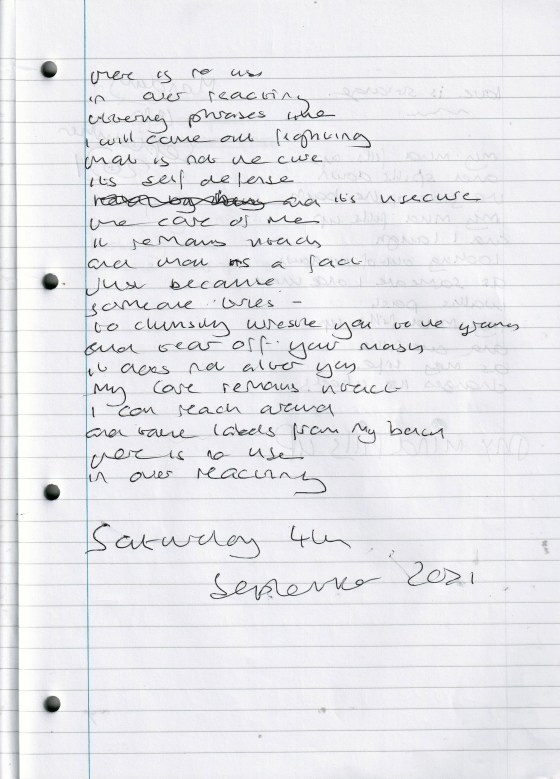 there is no use
in over reacting
uttering phrases like
I will come out fighting
that is not the cure
its self defense
and its insecure
the core of me
it remains intact
and that is a fact
Just because
someone tries -
to clumsily wrestle you to the ground
and tear off your mask
it does not alter you
My core remains intact
I can reach around
and take labels from my back
there is no use
in over reacting
Saturday 4th
September 2021